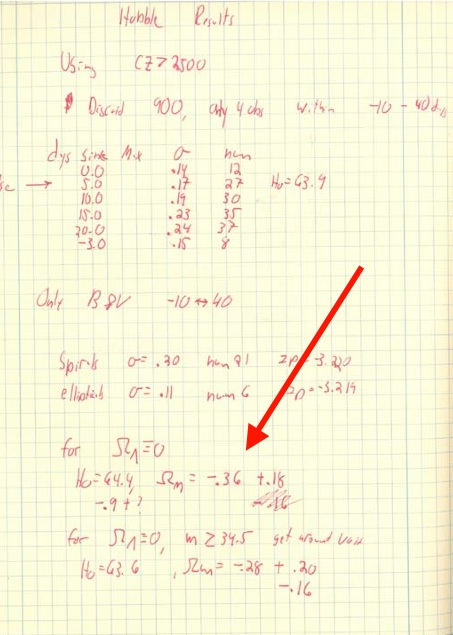 Hubble Results
Using CZ > 2500
Discard 900, only 4 obs within -10 - 40 dys
dys since Max σ num
0.0 .14 12
→ 5.0 .17 27 H₀=63.9
10.0 .19 30
15.0 .23 35
20.0 .24 37
-3.0 .15 8
Only B&V -10 ↔ 40
Spirals σ= .20 num 21 zp = -3.220
ellipticals σ= .11 num 6 zp = -3.219
for Ω_Λ≡0
H₀=64.4, Ω_m = -.36 +.18
-.9 + ?
for Ω_Λ≡0, m ≥ 34.5 get around void
H₀=63.6, Ω_m = -.28 + .20
-.16